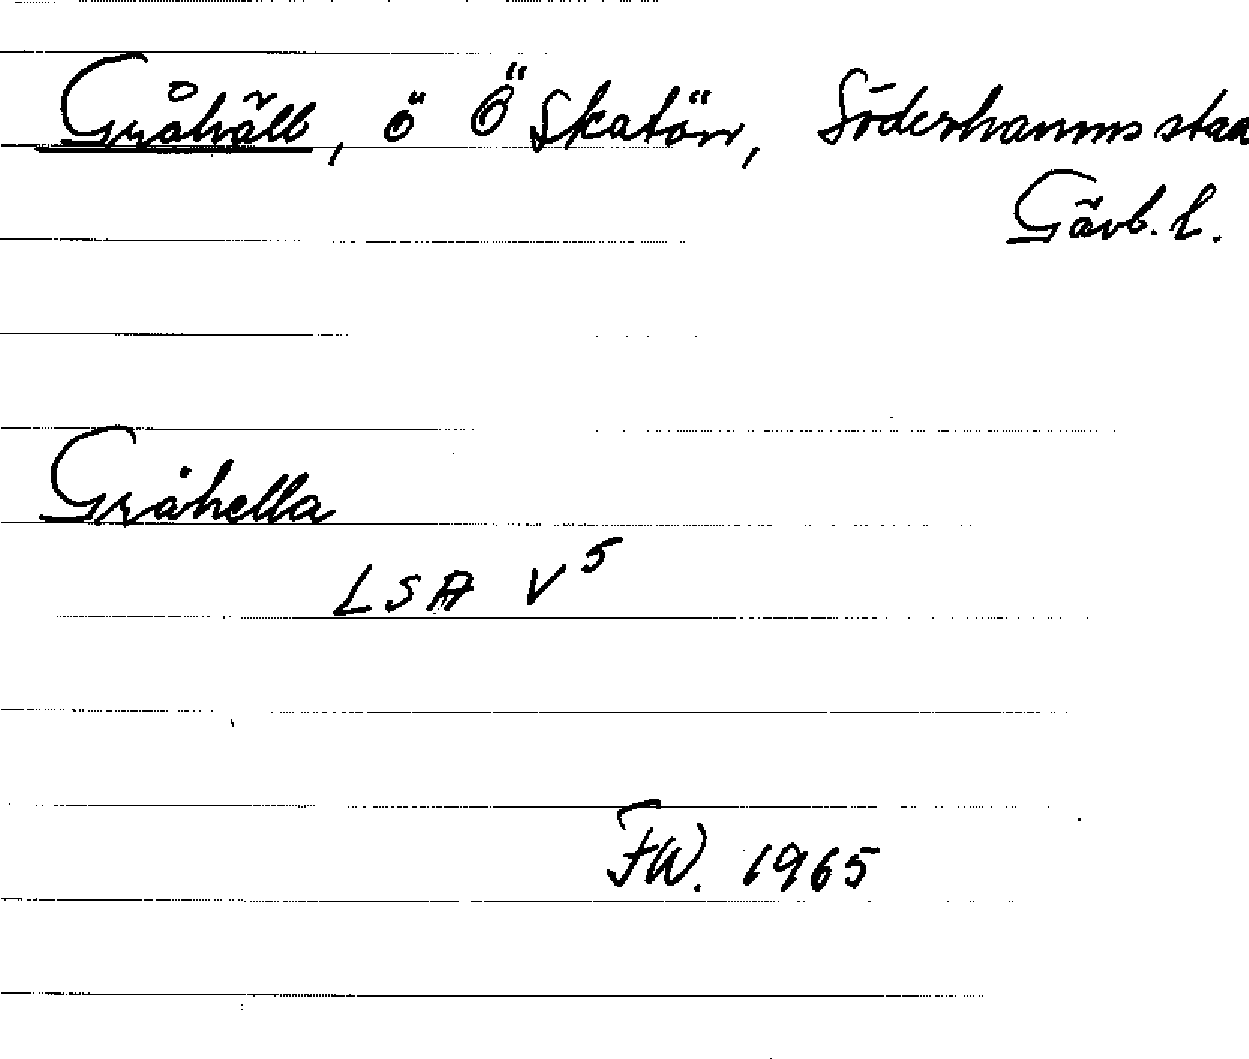 Gråhäll, ö Ö Skatön, Söderhamns stad
Gävb. l.
Gråhella
LSA V5
FW. 1965